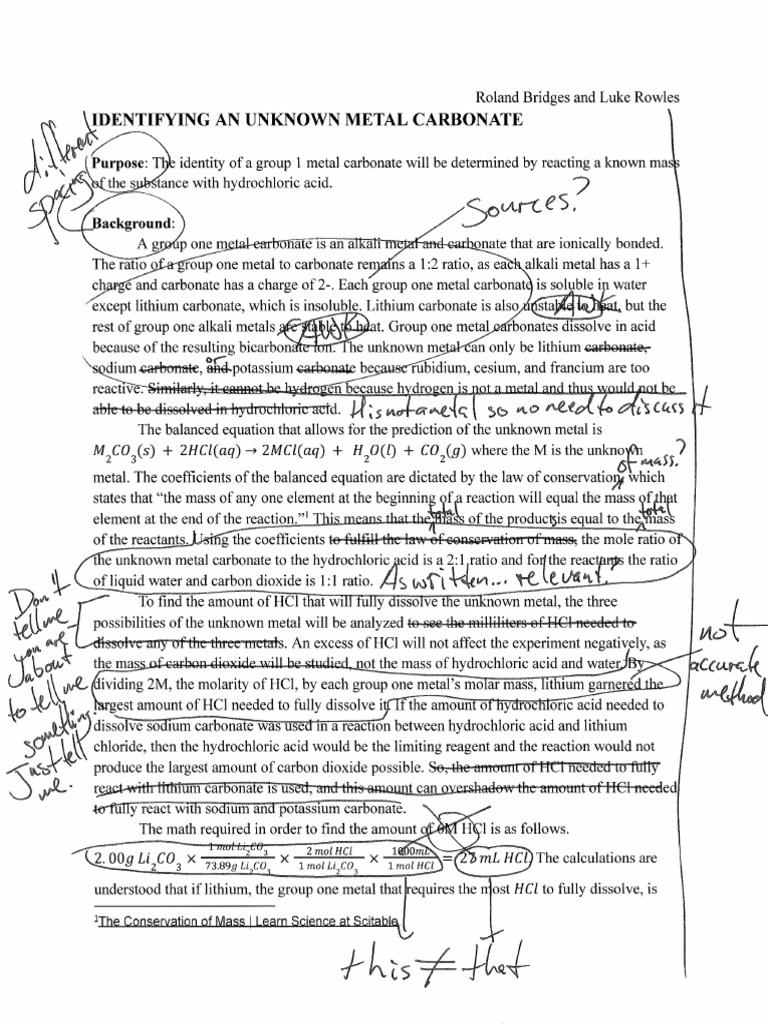 Roland Bridges and Luke Rowles
IDENTIFYING AN UNKNOWN METAL CARBONATE
different
spacing
Purpose: The identity of a group 1 metal carbonate will be determined by reacting a known mass
of the substance with hydrochloric acid.
Sources?
Background:
A group one metal carbonate is an alkali metal and carbonate that are ionically bonded.
The ratio of a group one metal to carbonate remains a 1:2 ratio, as each alkali metal has a 1+
charge and carbonate has a charge of 2-. Each group one metal carbonate is soluble in water
except lithium carbonate, which is insoluble. Lithium carbonate is also unstable to heat, but the
AWK
rest of group one alkali metals are stable to heat. Group one metal carbonates dissolve in acid
AWK
because of the resulting bicarbonate ion. The unknown metal can only be lithium carbonate,
or
sodium carbonate, and potassium carbonate because rubidium, cesium, and francium are too
reactive. Similarly, it cannot be hydrogen because hydrogen is not a metal and thus would not be
able to be dissolved in hydrochloric acid. H is not a metal so no need to discuss it
The balanced equation that allows for the prediction of the unknown metal is
M₂CO₃(s) + 2HCl(aq) → 2MCl(aq) + H₂O(l) + CO₂(g) where the M is the unknown
of mass.?
metal. The coefficients of the balanced equation are dictated by the law of conservation, which
states that “the mass of any one element at the beginning of a reaction will equal the mass of that
total total
element at the end of the reaction.”¹ This means that the mass of the products is equal to the mass
of the reactants. Using the coefficients to fulfill the law of conservation of mass, the mole ratio of
the unknown metal carbonate to the hydrochloric acid is a 2:1 ratio and for the reactants the ratio
of liquid water and carbon dioxide is 1:1 ratio. As written... relevant?
Don't
tell me
you are
about
to tell me
something.
Just tell
me.
To find the amount of HCl that will fully dissolve the unknown metal, the three
possibilities of the unknown metal will be analyzed to see the milliliters of HCl needed to
dissolve any of the three metals. An excess of HCl will not affect the experiment negatively, as
the mass of carbon dioxide will be studied, not the mass of hydrochloric acid and water. By
dividing 2M, the molarity of HCl, by each group one metal’s molar mass, lithium garnered the
not
accurate
method
largest amount of HCl needed to fully dissolve it. If the amount of hydrochloric acid needed to
dissolve sodium carbonate was used in a reaction between hydrochloric acid and lithium
chloride, then the hydrochloric acid would be the limiting reagent and the reaction would not
produce the largest amount of carbon dioxide possible. So, the amount of HCl needed to fully
react with lithium carbonate is used, and this amount can overshadow the amount of HCl needed
to fully react with sodium and potassium carbonate.
The math required in order to find the amount of 6M HCl is as follows.
2.00g Li₂CO₃ × 1 mol Li₂CO₃/73.89g Li₂CO₃ × 2 mol HCl/1 mol Li₂CO₃ × 1000mL/1 mol HCl = 27 mL HCl. The calculations are
understood that if lithium, the group one metal that requires the most HCl to fully dissolve, is
¹The Conservation of Mass | Learn Science at Scitable
this ≠ that